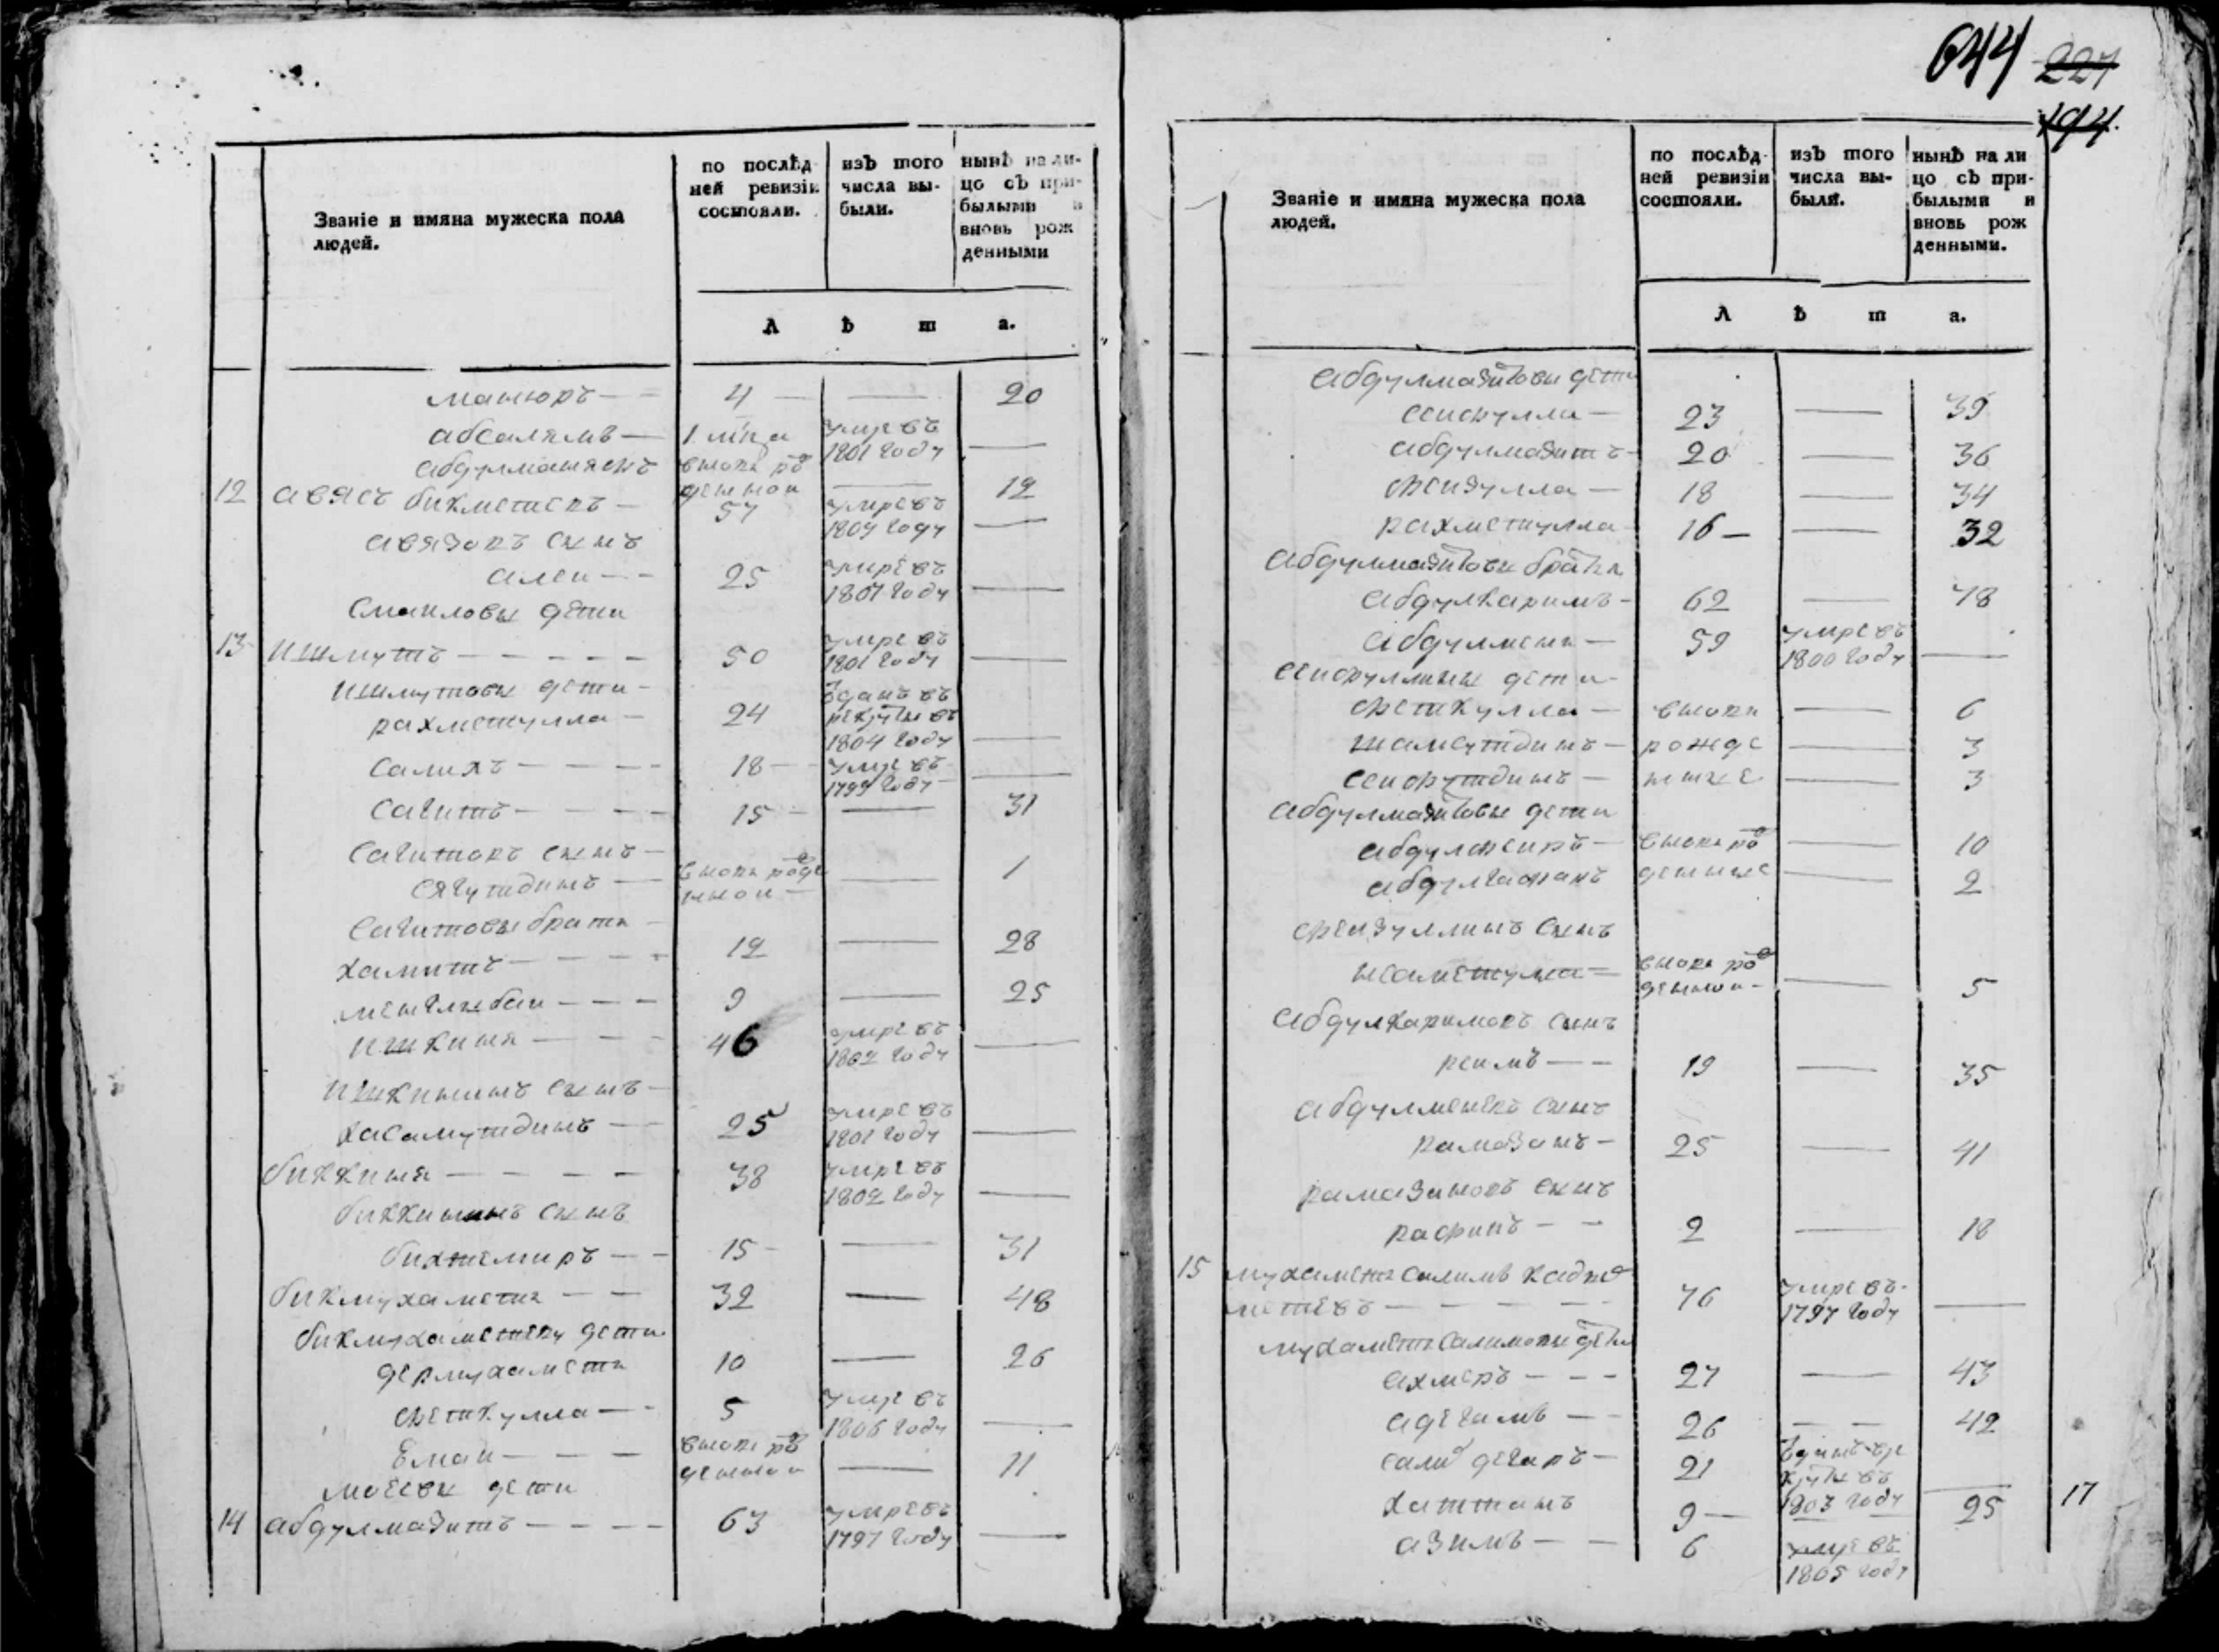 644 227
194
Званіе и имяна мужеска пола
людей.
по послѣд-
ней ревизіи
состояли.
изъ того
числа вы-
были.
нынѣ на ли-
цо съ при-
былыми и
вновь рож
денными
Л ѣ т а.
манюръ 4 20
абсалямъ 1 умре въ 1801 году
абдулманянъ вновь рожденной 12
12 авясъ бикметевъ 57 умре въ 1807 году
авязовъ сынъ
алеи 25 умре въ 1807 году
смаиловы дети
13 ишмутъ 50 умре въ 1801 году
ишмутовы дети
рахметулла 24 зданъ въ рекруты въ 1804 году
салихъ 18 умре въ 1799 году
сагитъ 15 31
сагитовъ сынъ
сягутдинъ вновь рожденнои 1
сагитовы братья
хамитъ 12 28
менглибаи 9 25
ишкиня 46 умре въ 1802 году
ишкининъ сынъ
хасамутдинъ 25 умре въ 1801 году
биккиня 38 умре въ 1802 году
биккининъ сынъ
бихтемиръ 15 31
бикмухаметь 32 48
бикмухаметевы дети
дермухаметь 10 26
феткулла 5 умре въ 1806 году
Емаи вновь рожденнои 11
моеевы дети
14 абдулмазитъ 63 умре въ 1797 году
Званіе и имяна мужеска пола
людей.
по послѣд-
ней ревизіи
состояли.
изъ того
числа вы-
были.
нынѣ на ли
цо съ при-
былыми и
вновь рож
денными.
Л ѣ т а.
абдулмазитовы дети
сеифулла 23 39
абдулмазитъ 20 36
феизулла 18 34
рахметулла 16 32
абдулмазитовы братья
абдулкаримъ 62 78
абдулмень 59 умре въ 1800 году
сеифуллины дети
феткулла вновь 6
шамсутдинъ рожде 3
сеифутдинъ нные 3
абдулмазитовы дети
абдулжеиръ вновь рож 10
абдулгафанъ денные 2
феизуллинъ сынъ
неаметулла вновь рожденнои 5
абдулкаримовъ сынъ
реимъ 19 35
абдулменевъ сынъ
рамазанъ 25 41
рамазановъ сынъ
рафикъ 2 18
15 мухаметь салимъ кадыр
метевъ 76 умре въ 1797 году
мухаметь салимовы дети
ахмеръ 27 43
адегамъ 26 42
21 зданъ въ рекруты въ 1803 году
хаттанъ 9 25
азимъ 6 умре въ 1805 году
17